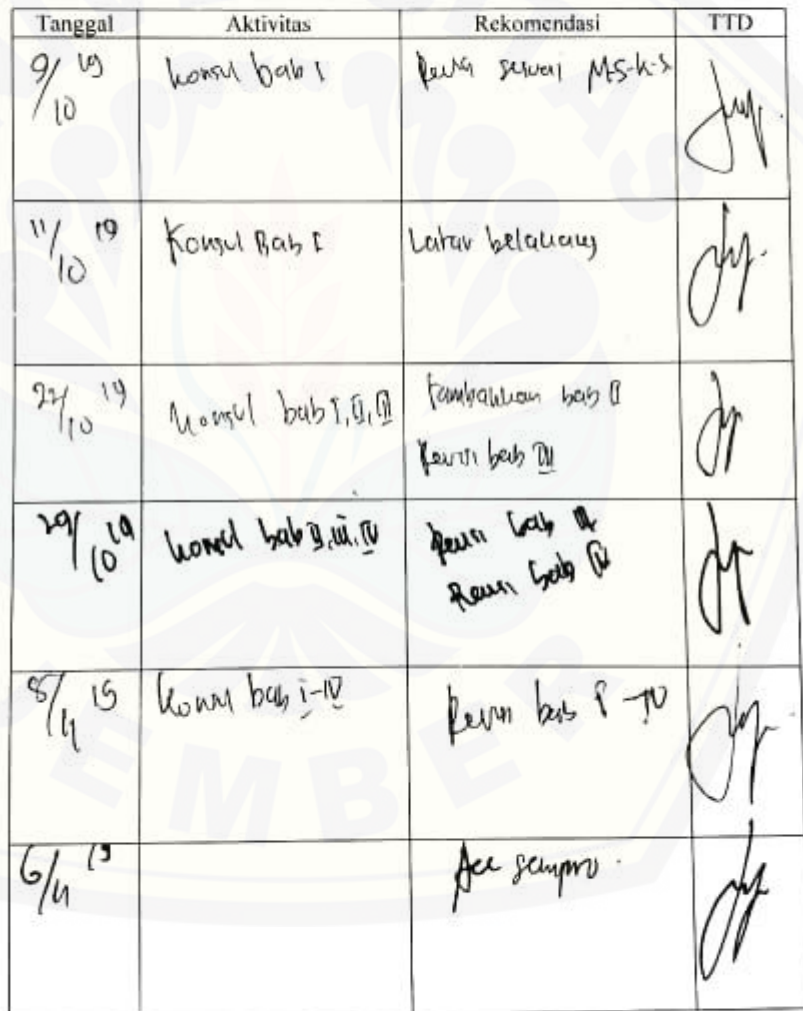 Tanggal Aktivitas Rekomendasi TTD
9/10 19 Konsul bab I Revisi sesuai M-S-K-S
11/10 19 Konsul Bab I Latar belakang
22/10 19 Konsul bab I, II, III Tambahkan bab II
Revisi bab IV
29/10 19 Konsul bab II, III, IV Revisi bab III
Revisi bab IV
/11 19 Konsul bab I-IV Revisi bab I-IV
6/11 19 Acc sempro.
EMBER